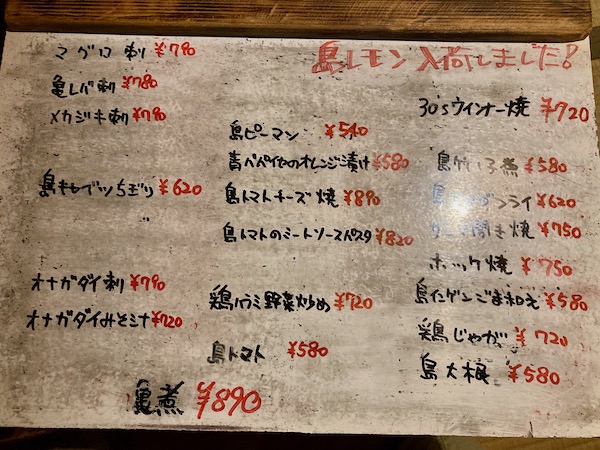 島レモン入荷しました!
マグロ刺 ¥790
亀レバ刺 ¥780
メカジキ刺 ¥790
島キャベツちぎり ¥620
オナガダイ刺 ¥790
オナガダイみそ汁 ¥720
亀煮 ¥890
島ピーマン ¥540
青パパイヤのオレンジ漬け ¥580
島トマトチーズ焼 ¥890
島トマトのミートソースパスタ ¥820
鶏ハラミ野菜炒め ¥720
島トマト ¥580
30sウインナー焼 ¥720
島竹の子煮 ¥580
島 フライ ¥620
開き焼 ¥750
ホッケ焼 ¥750
島インゲンごま和え ¥580
鶏じゃが ¥720
島大根 ¥580